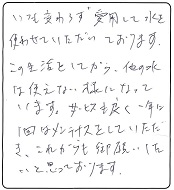 いつも変わらず愛用して水を
使わせていただいております。
この生活としてから、他の水
は使えない様になって
います。サービスも良く一年に
1回はメンテナスをしていただ
き、これからも御願いした
いと思っております。